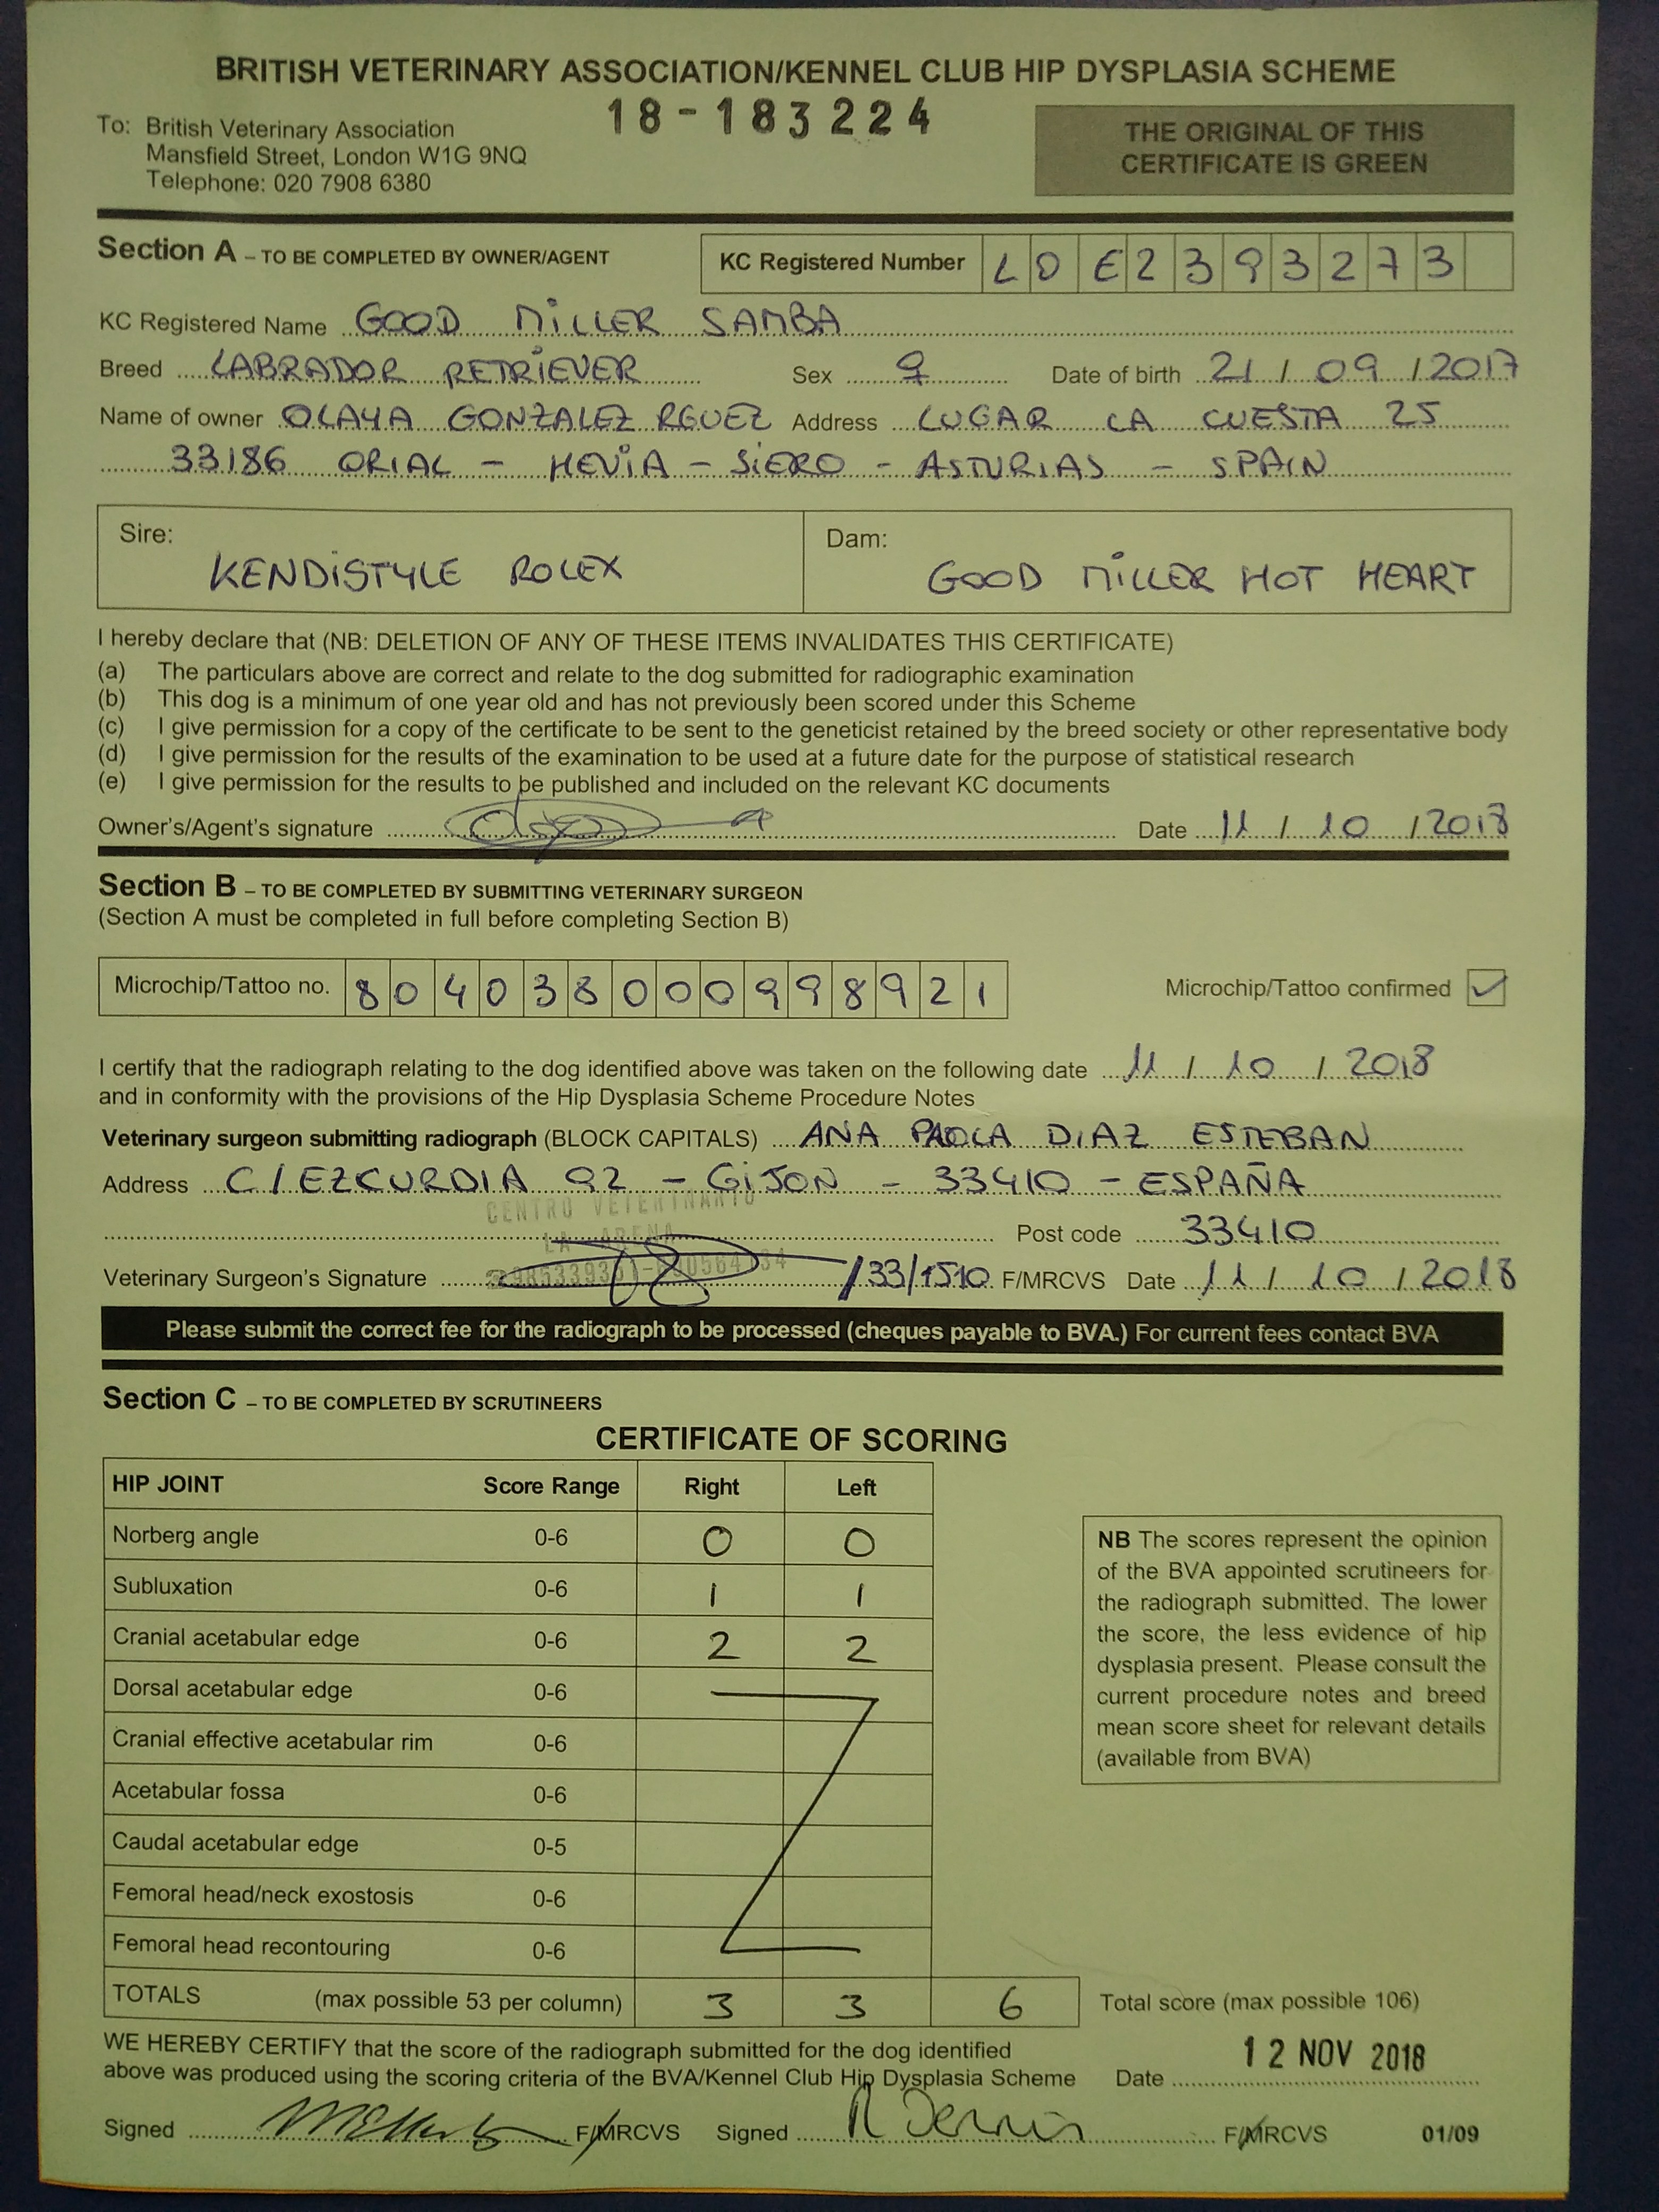 BRITISH VETERINARY ASSOCIATION/KENNEL CLUB HIP DYSPLASIA SCHEME
18-183224
To: British Veterinary Association
Mansfield Street, London W1G 9NQ
Telephone: 020 7908 6380
THE ORIGINAL OF THIS
CERTIFICATE IS GREEN
Section A – TO BE COMPLETED BY OWNER/AGENT
KC Registered Number LOE2393273
KC Registered Name GOOD MILLER SAMBA
Breed LABRADOR RETRIEVER Sex ♀ Date of birth 21 / 09 / 2017
Name of owner OLAYA GONZALEZ RGUEZ Address LUGAR LA CUESTA 25
33186 ORIAL - HEVIA - SIERO - ASTURIAS - SPAIN
Sire: Dam:
KENDISTYLE ROLEX GOOD MILLER HOT HEART
I hereby declare that (NB: DELETION OF ANY OF THESE ITEMS INVALIDATES THIS CERTIFICATE)
(a) The particulars above are correct and relate to the dog submitted for radiographic examination
(b) This dog is a minimum of one year old and has not previously been scored under this Scheme
(c) I give permission for a copy of the certificate to be sent to the geneticist retained by the breed society or other representative body
(d) I give permission for the results of the examination to be used at a future date for the purpose of statistical research
(e) I give permission for the results to be published and included on the relevant KC documents
Owner's/Agent's signature Date 11 / 10 / 2018
Section B – TO BE COMPLETED BY SUBMITTING VETERINARY SURGEON
(Section A must be completed in full before completing Section B)
Microchip/Tattoo no. 804038000998921 Microchip/Tattoo confirmed ✓
I certify that the radiograph relating to the dog identified above was taken on the following date 11 / 10 / 2018
and in conformity with the provisions of the Hip Dysplasia Scheme Procedure Notes
Veterinary surgeon submitting radiograph (BLOCK CAPITALS) ANA PAOLA DIAZ ESTEBAN
Address C/EZCURDIA 92 - GIJON - 33410 - ESPAÑA
CENTRO VETERINARIO
LA ARENA
Post code 33410
Veterinary Surgeon's Signature /33/1510 F/MRCVS Date 11 / 10 / 2018
Please submit the correct fee for the radiograph to be processed (cheques payable to BVA.) For current fees contact BVA
Section C – TO BE COMPLETED BY SCRUTINEERS
CERTIFICATE OF SCORING
HIP JOINT Score Range Right Left
Norberg angle 0-6 0 0
Subluxation 0-6 1 1
Cranial acetabular edge 0-6 2 2
Dorsal acetabular edge 0-6
Cranial effective acetabular rim 0-6
Acetabular fossa 0-6
Caudal acetabular edge 0-5
Femoral head/neck exostosis 0-6
Femoral head recontouring 0-6
TOTALS (max possible 53 per column) 3 3 6 Total score (max possible 106)
NB The scores represent the opinion
of the BVA appointed scrutineers for
the radiograph submitted. The lower
the score, the less evidence of hip
dysplasia present. Please consult the
current procedure notes and breed
mean score sheet for relevant details
(available from BVA)
WE HEREBY CERTIFY that the score of the radiograph submitted for the dog identified
above was produced using the scoring criteria of the BVA/Kennel Club Hip Dysplasia Scheme Date 12 NOV 2018
Signed F/MRCVS Signed R Dennis F/MRCVS 01/09